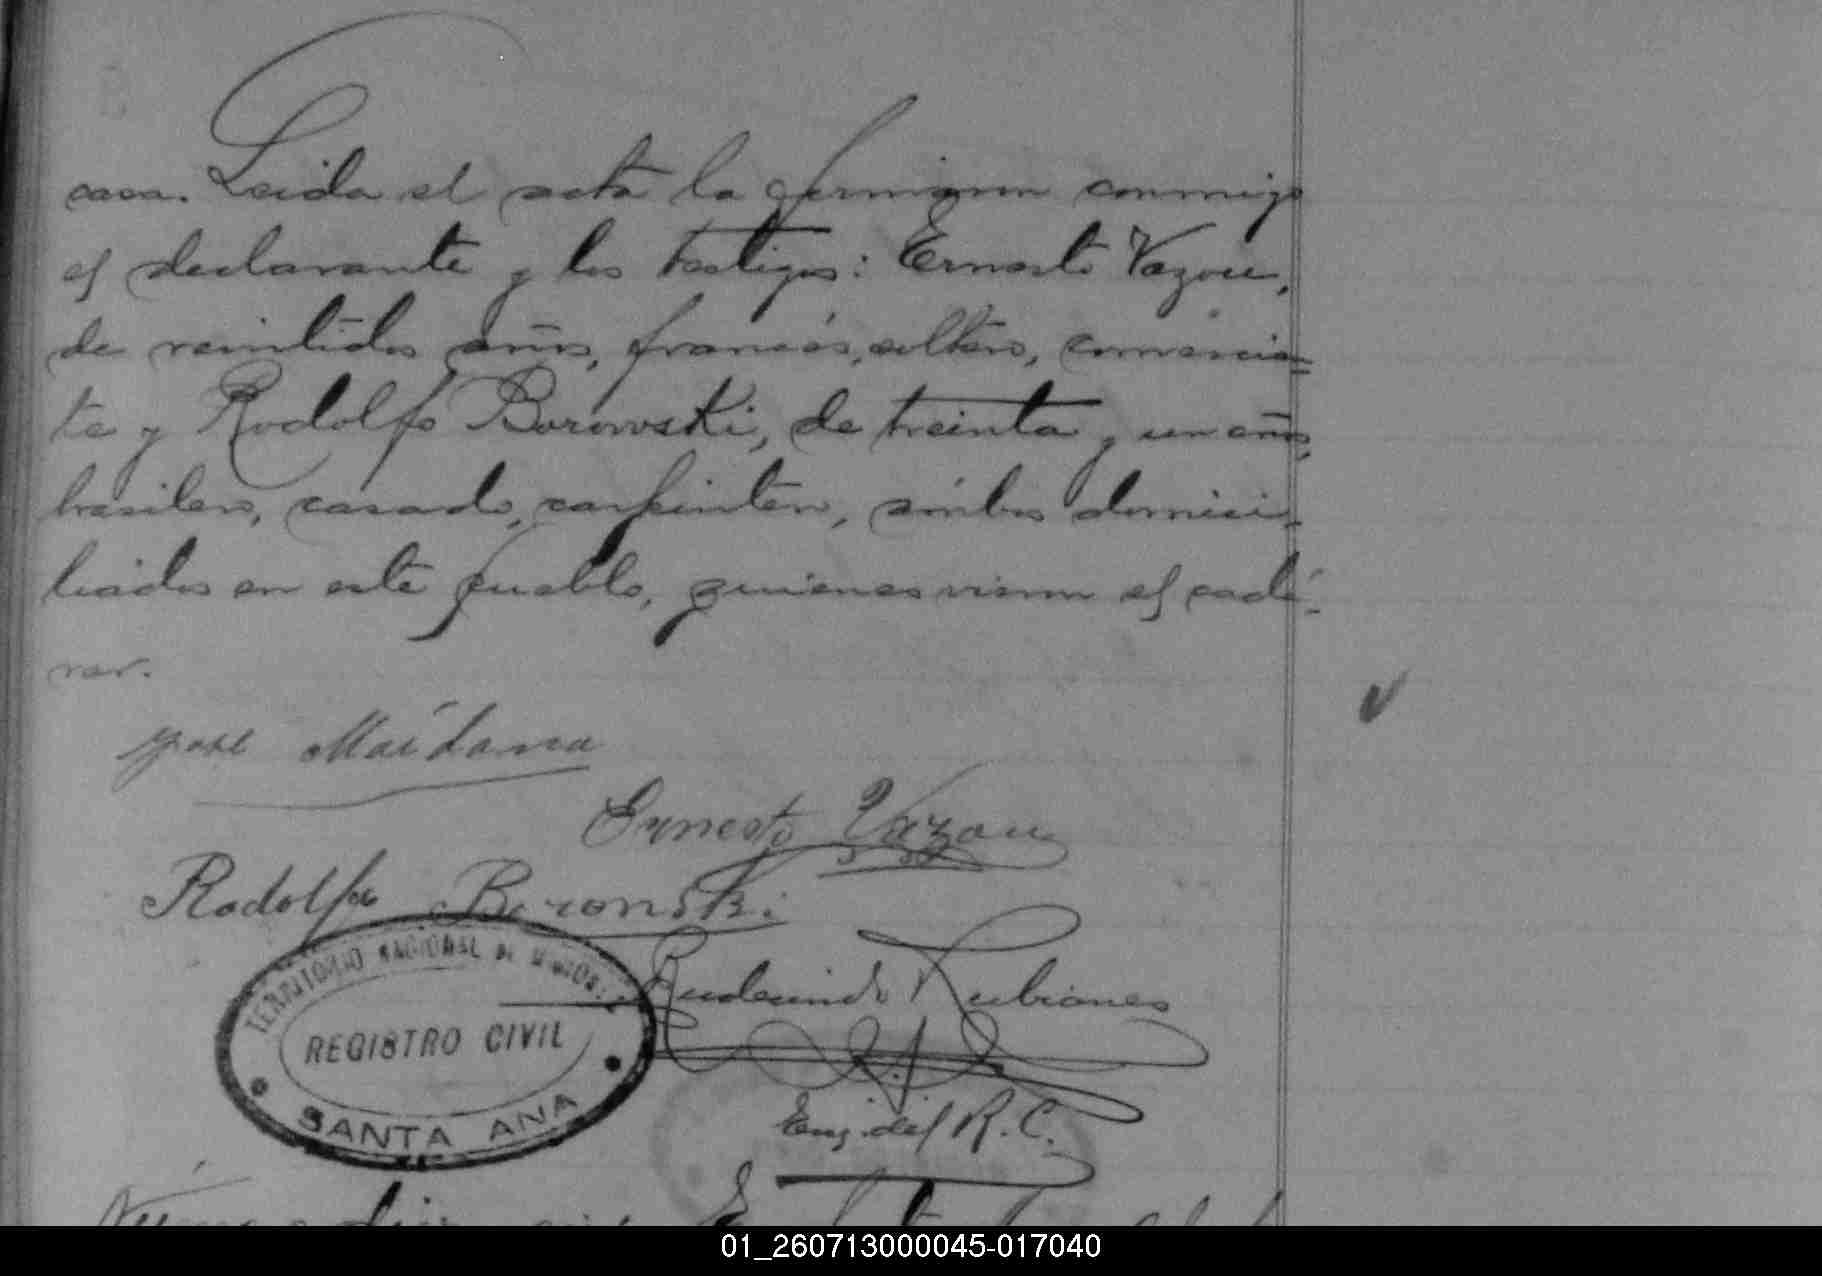 casa. Leida el acta la firmaron conmigo
el declarante y los testigos: Ernesto Vazou,
de veintidos años, francés, soltero, comercian=
te y Rodolfo Borowski, de treinta y un años,
brasilero, casado, carpintero, ámbos domici-
liados en este pueblo, quienes vieron el cadá-
ver.
José Maidana
Ernesto Vazou
Rodolfo Boronski
Rudecindo Rubianes
TERRITORIO NACIONAL DE MISIONES
REGISTRO CIVIL
SANTA ANA
Enc. del R. C.
01_260713000045-017040